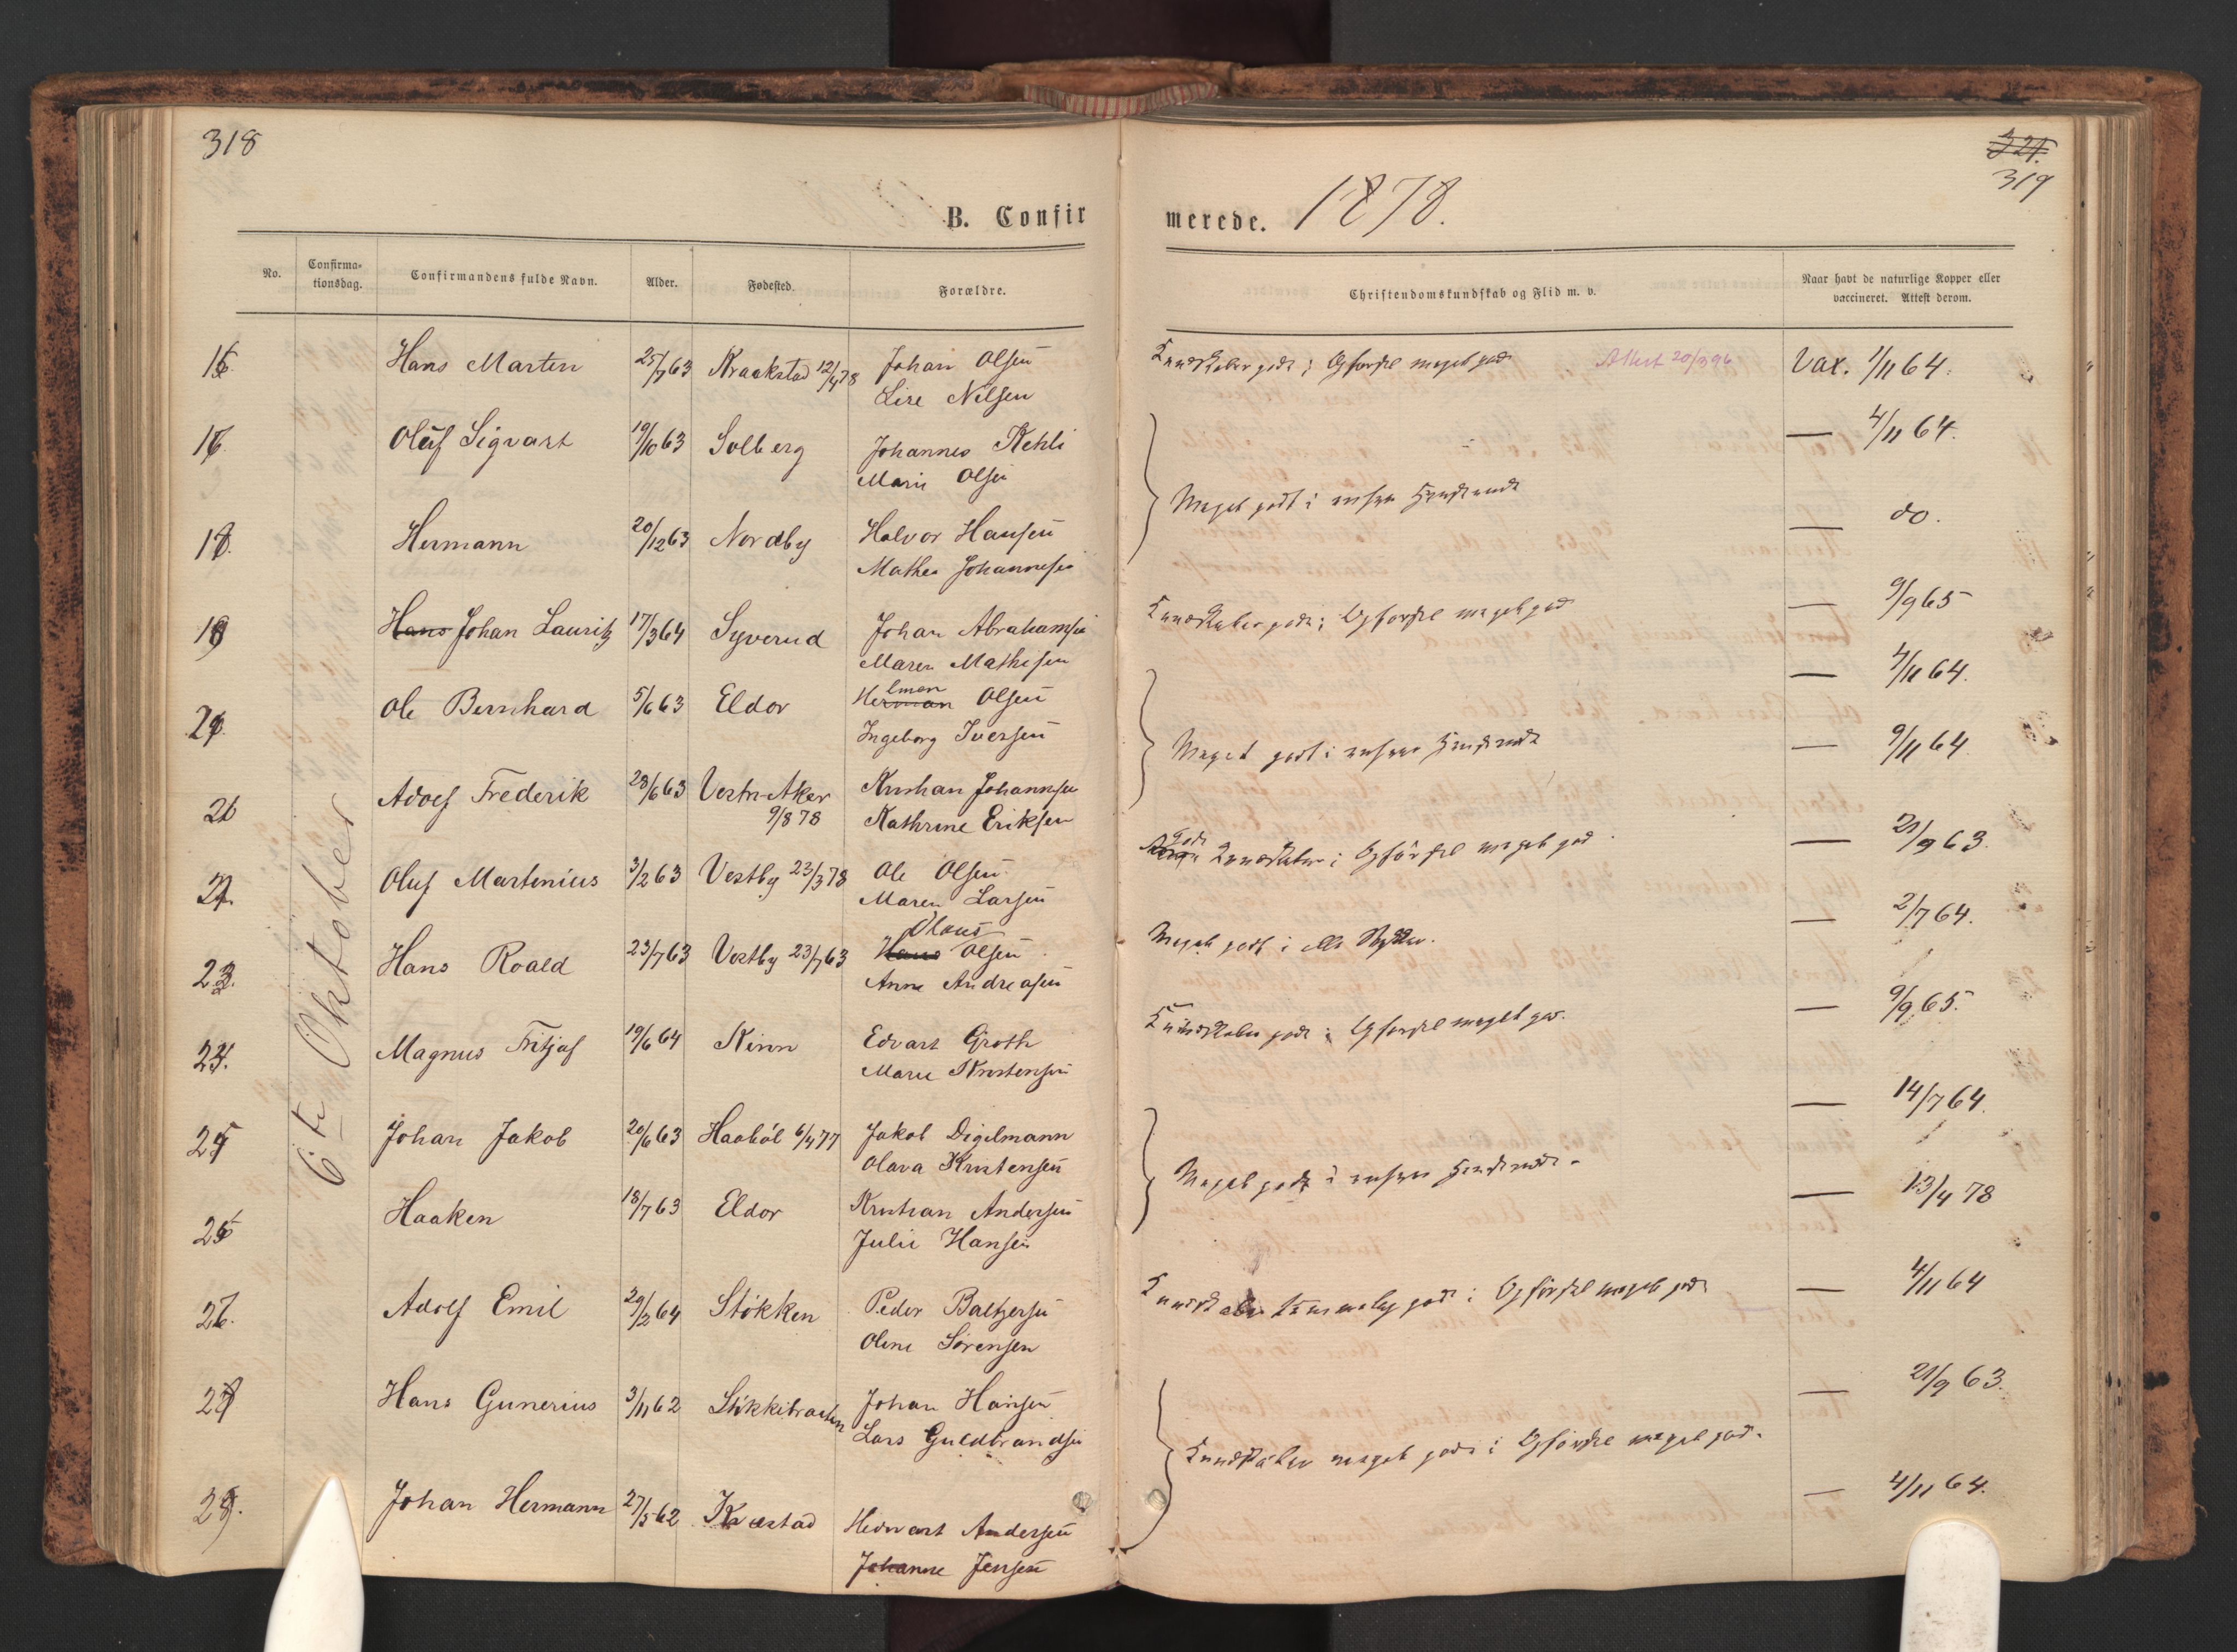 318
B. Confir
No.
Confirma-
tionsdag.
Confirmandens fulde Navn.
Alder.
Fødested
Forældre.
6te Oktober
15
Hans Marten
25/7 63
Kraakstad 12/4 78
Johan Olsen
Lise Nilsen
16.
Oluf Sigvart
19/10 63
Solberg
Johannes Kehli
Marie Olsen
18.
Hermann
20/12 63
Nordby
Halvor Hansen
Mathea Johannesen
Hans Johan Lauritz
17/3 64
Syverud
Johan Abrahamsen
Maren Mathisen
Ole Bernhard
5/6 63
Eldor
Herman lman Olsen
Ingeborg Iversen
Adolf Frederik
28/6 63
Vestre Aker
9/8 78
Kristian Johannesen
Kathrine Eriksen
Oluf Martenius
3/2 63
Vestby 23/3 78
Ole Olsen
Maren Larsen
23.
Hans Roald
23/7 63
Vestby 23/7 63
Olaus
Hans Olsen
Anne Andreasen
24.
Magnus Fritjof
19/6 64
Kinn
Edvart Groth
Marie Kristensen
25
Johan Jakob
20/6 63
Haabøl 6/4 77
Jakob Digelmann
Olava Kristensen
Haaken
18/7 63
Eldor
Kristian Andersen
Julie Hansen
Adolf Emil
29/2 64
Støkken
Peder Baltzersen
Oline Sørensen
Hans Gunerius
3/11 62
Stikkibraaten
Johan Hansen
Lars Guldbrandsen
Johan Hermann
27/5 62
Krostad
Hedvart Andersen
Johanne Jensen
321.
319
merede. 1878.
Christendomskundskab og Flid m. v.
Naar havt de naturlige Kopper eller
vaccineret. Attest derom.
Kundskaber gode; Opførsel meget god
Attest 20/3 96
Vax. 1/11 64.
— 4/11 64.
Meget godt i enhver Henseende
— do.
Kundskaber gode; Opførsel meget god
— 9/9 65
— 4/11 64.
Meget godt i enhver Henseende
— 9/11 64
Gode
Kundskaber; Opførsel meget god
— 21/9 63.
Meget godt i alle Stykker.
— 2/7 64.
Kundskaber gode; Opførsel meget god.
— 9/9 65.
— 14/7 64.
Meget godt i enhver Henseende
— 13/4 78
Kundskaber temmelig gode; Opførsel meget god
— 4/11 64
— 21/9 63.
Kundskaber meget gode; Opførsel meget god.
— 4/11 64.